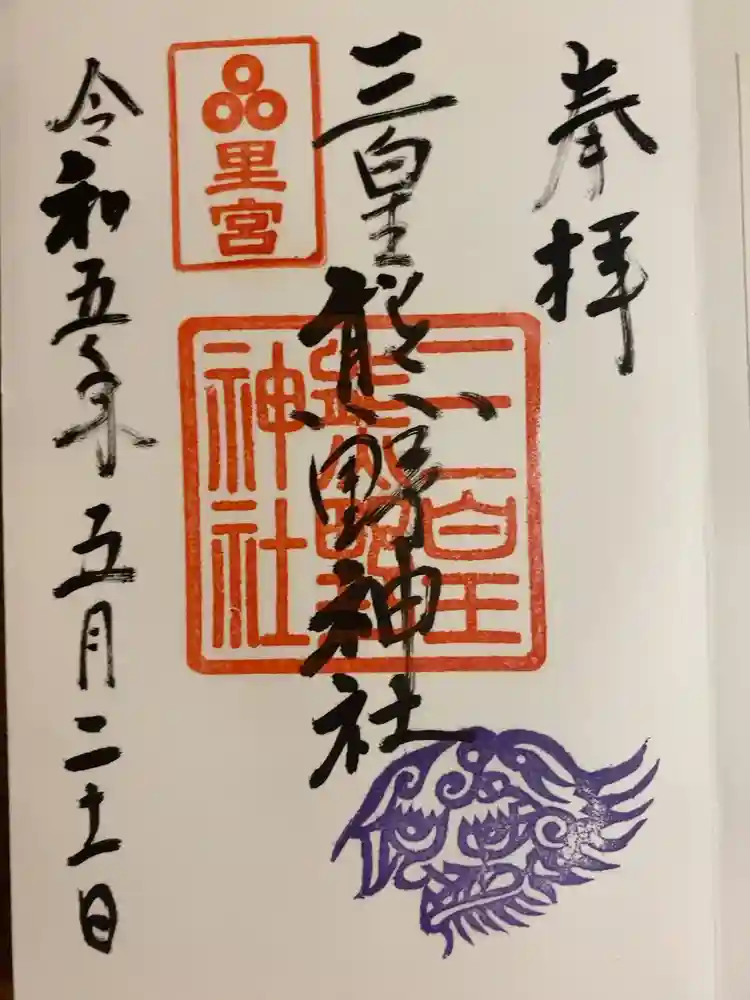 奉拝
三皇熊野神社
里宮
三皇
熊野
神社
令和五年五月二十一日